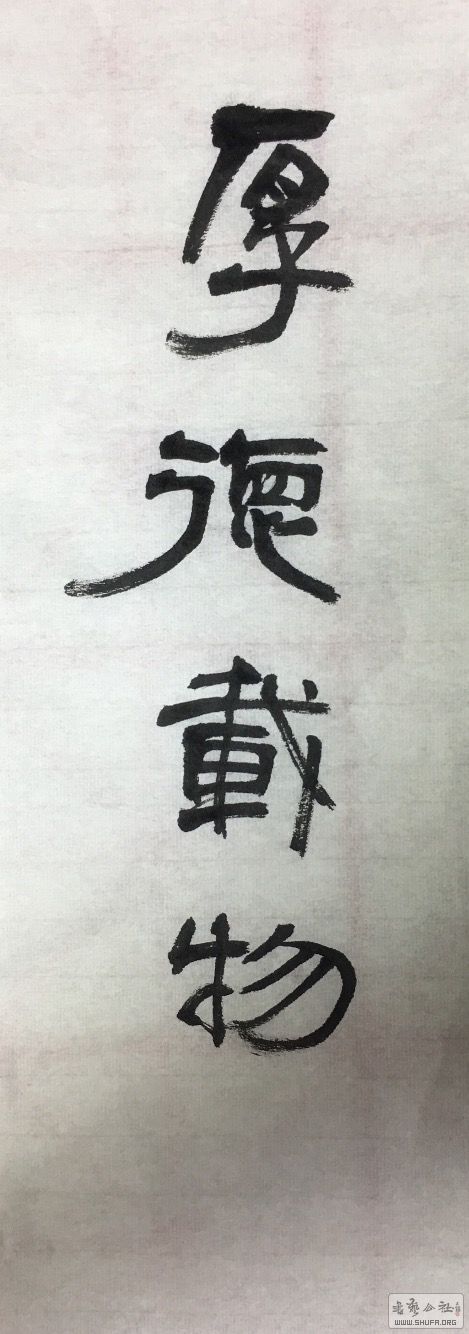 厚德載物
書藝公社
WWW.SHUFA.ORG